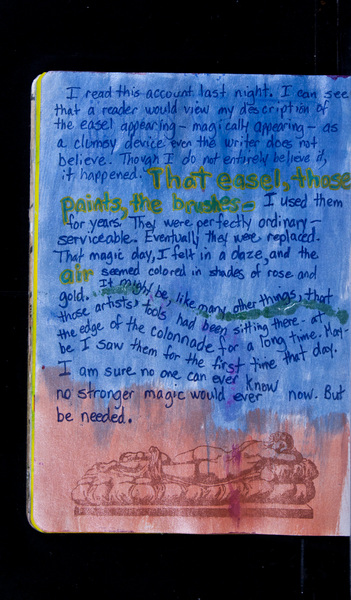 I read this account last night. I can see
that a reader would view my description of
the easel appearing - magically appearing - as
a clumsy device even the writer does not
believe. Though I do not entirely believe it,
it happened. That easel, those
paints, the brushes - I used them
for years. They were perfectly ordinary -
serviceable. Eventually they were replaced.
That magic day, I felt in a daze, and the
air seemed colored in shades of rose and
gold. It might be, like many other things, that
those artists' tools had been sitting there - at
the edge of the colonnade for a long time. May-
be I saw them for the first time that day.
I am sure no one can ever know
no stronger magic would ever now. But
be needed.